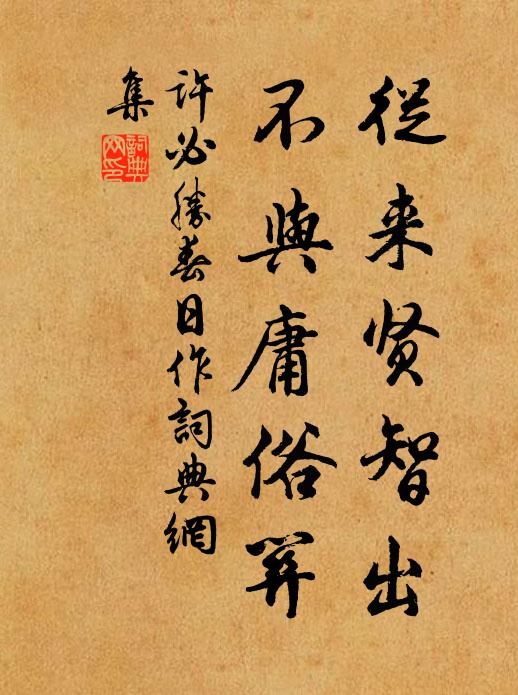 從来贤智出
不與庸俗
许必勝春日作詞典網
集
詞典
网印